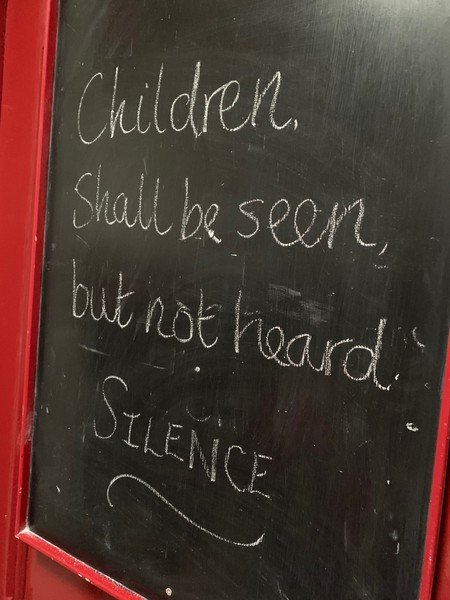 Children,
Shall be seen,
but not heard.
SILENCE